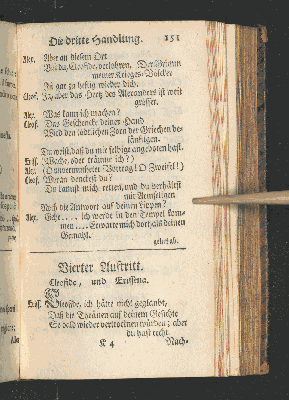 Die dritte Handlung. 151
Alex. Aber an diesem Ort
Bist du, Cleofide, verlohren. Der Grimm
meiner Krieges-Völcker
Ist gar zu hefftig wieder dich.
Cleof. Ist aber das Hertz des Alexanders ist weit
grösser.
Alex. Was kan ich machen?
Cleof. Das Geschencke deiner Hand
Wird den tödtlichen Zorn der Griechen be-
sänfftigen.
Du weist, daß du mir selbige angeboten hast.
Eriss. (Wache, oder träume ich?)
Alex. (O unvermutheter Vortrag! O Zweiffel!)
Cleof. Woran denckest du?
Du kanst mich retten, und du verhältst
mit Armseliger
Noch die Antwort auf deinen Lippen?
Alex. Gehe.... ich werde in den Tempel kom-
men .... Erwarte mich dort, als deinen
Gemahl.
gehet ab.
Vierter Auftritt.
Cleofide, und Erissena.
Eriss. Cleofide, ich hätte nicht geglaubt,
Daß die Thränen auf deinem Gesichte
So bald wieder vertrocknen würden; aber
du hast recht.
K 4 Nach-